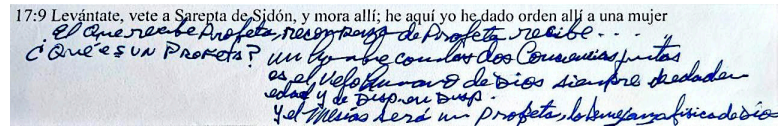 17:9 Levántate, vete a Sarepta de Sidón, y mora allí; he aquí yo he dado orden allí a una mujer
El que recibe Profeta, recompensa de Profeta recibe...
¿Qué es UN PROFETA? un hombre con las dos Consciencias juntas
es el Velo Humano de Dios siempre de edad en
edad y de Disp. en Disp.
y el Mesías será un Profeta, la Semejanza física de Dios